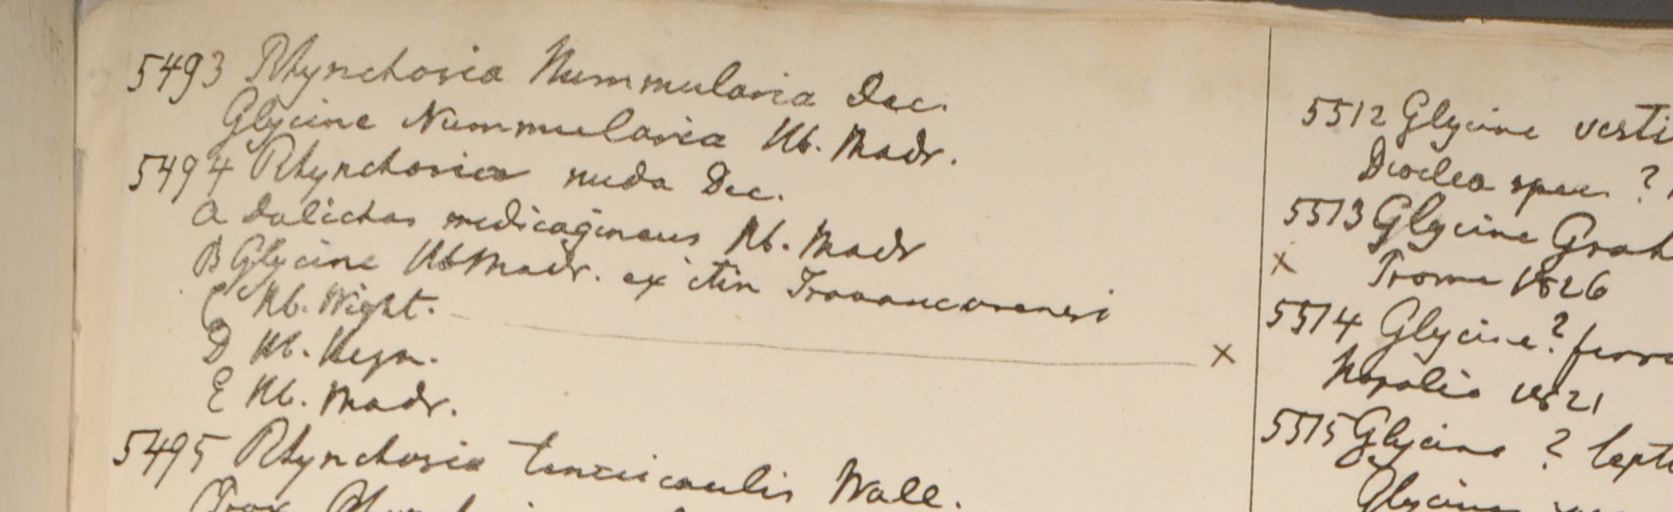 5493 Rhynchosia Nummularia Dec.
Glycine Nummularia Hb. Madr.
5494 Rhynchosia nuda Dec.
A Dolichos medicagineus Hb. Madr
B Glycine Hb Madr. ex itin Travancorensi
C Hb. Wight. x
D Hb. Heyn.
E Hb. Madr.
5495 Rhynchosia tenuicaulis Wall.
5512 Glycine vesti
Dioclea spec. ?
5513 Glycine Grah
x Prome 1826
5514 Glycine ? ferru
Napalia 1821
5515 Glycine ? lept
Glycine